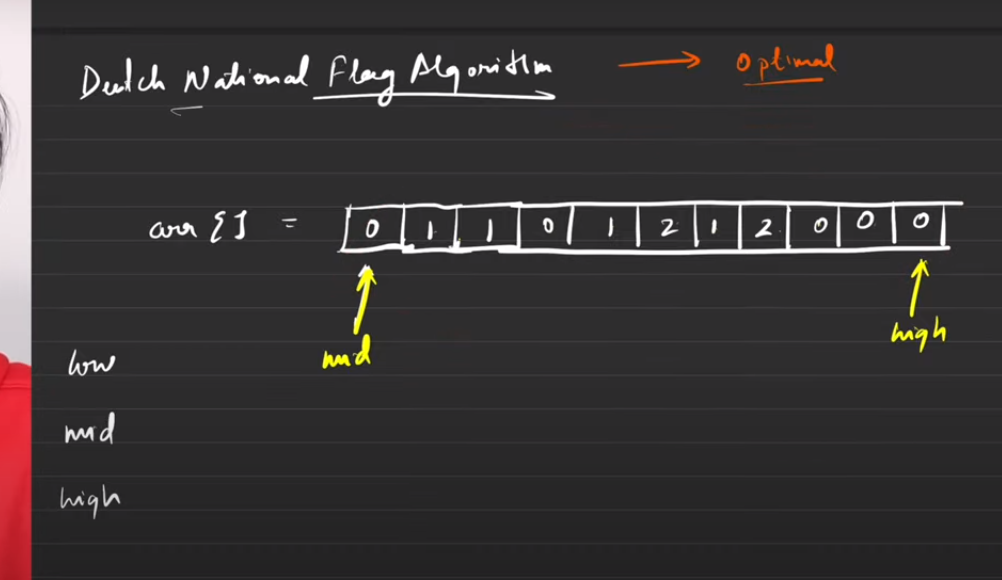 Deutch National Flag Algorithm → Optimal
arr [] = 0 1 1 0 1 2 1 2 0 0 0
mid high
low
mid
high